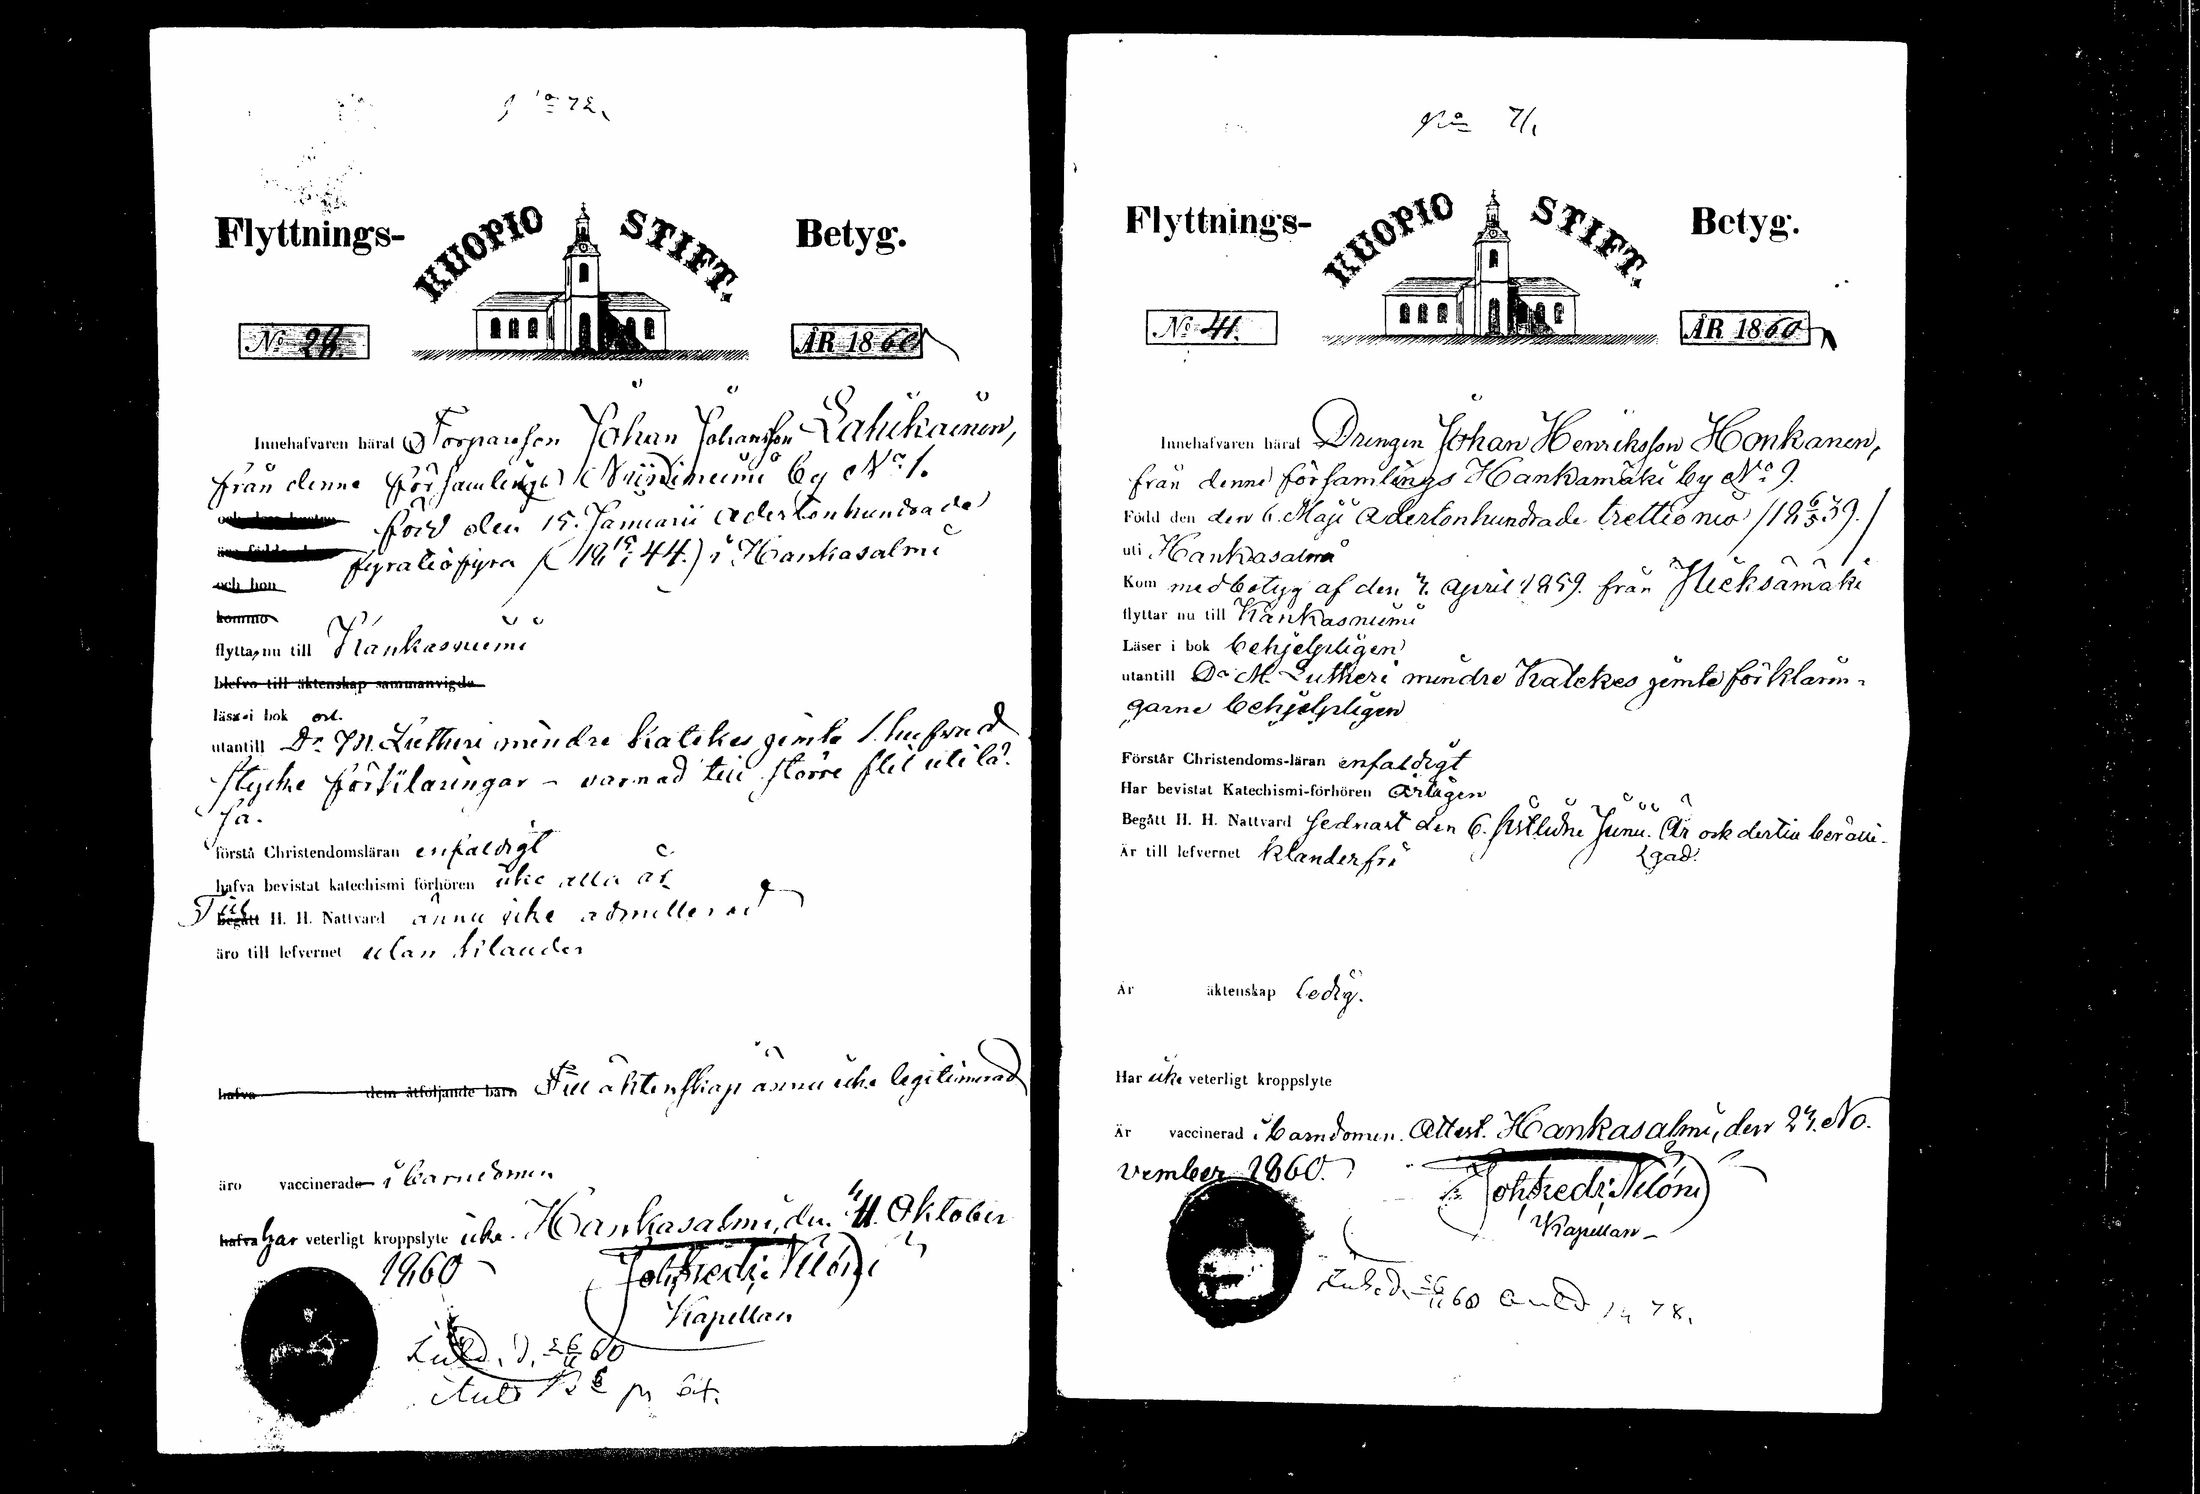 No 72.
Flyttnings- KUOPIO STIFT. Betyg.
No 29. ÅR 1860
Innehafvaren härat Torparesson Johan Johansson Lahikainen,
från denna församlings Niisiniemi by No 1.
född den 15. Januarii adertonhundrade
fyratiofyra (18 15/1 44.) i Hankasalmi
och hon
kommo
flytta nu till Kankasniemi
blefvo till äktenskap sammanvigde
läsa i bok ord.
utantill Dr M. Lutheri mindre katekes jemte 1. hufvud
stycke förklaringar - varnad till större flit uti lä-
sa.
förstå Christendomsläran enfaldigt
hafva bevistat katechismi förhören icke alla år
Till H. H. Nattvard ännu icke admitterad
äro till lefvernet utan klander
hafva dem åtföljande barn Till äktenskap ännu icke legitimerad
äro vaccinerade i barndomen
hafva har veterligt kroppslyte icke. Hankasalmi, den 11. Oktober
1860
Joh. Fredr. Nilóni
Kapellan
Inl. d. 26/11 60
No 71.
Flyttnings- KUOPIO STIFT. Betyg.
No 41. ÅR 1860
Innehafvaren härat Drengen Johan Henriksson Honkanen,
från denna församlings Hankamäki by No 9.
Född den den 6. Maji adertonhundrade trettionio /18 6/5 39./
uti Hankasalmi
Kom med betyg af den 7. April 1859. från Jäcksämäki
flyttar nu till Kankasniemi
Läser i bok behjelpligen
utantill Dr M. Lutheri mindre Katekes jemte förklarin-
garne behjelpligen
Förstår Christendoms-läran enfaldigt
Har bevistat Katechismi-förhören årligen
Begått H. H. Nattvard sednast den 6. sistlidne Junii. Är ock dertill berätti-
gad.
Är till lefvernet klanderfri
Är äktenskap ledig.
Har icke veterligt kroppslyte
Är vaccinerad i barndomen. Attest. Hankasalmi, den 23. No-
vember 1860.
Joh. Fredr. Nilóni
Kapellan
Inl. d. 26/11 60